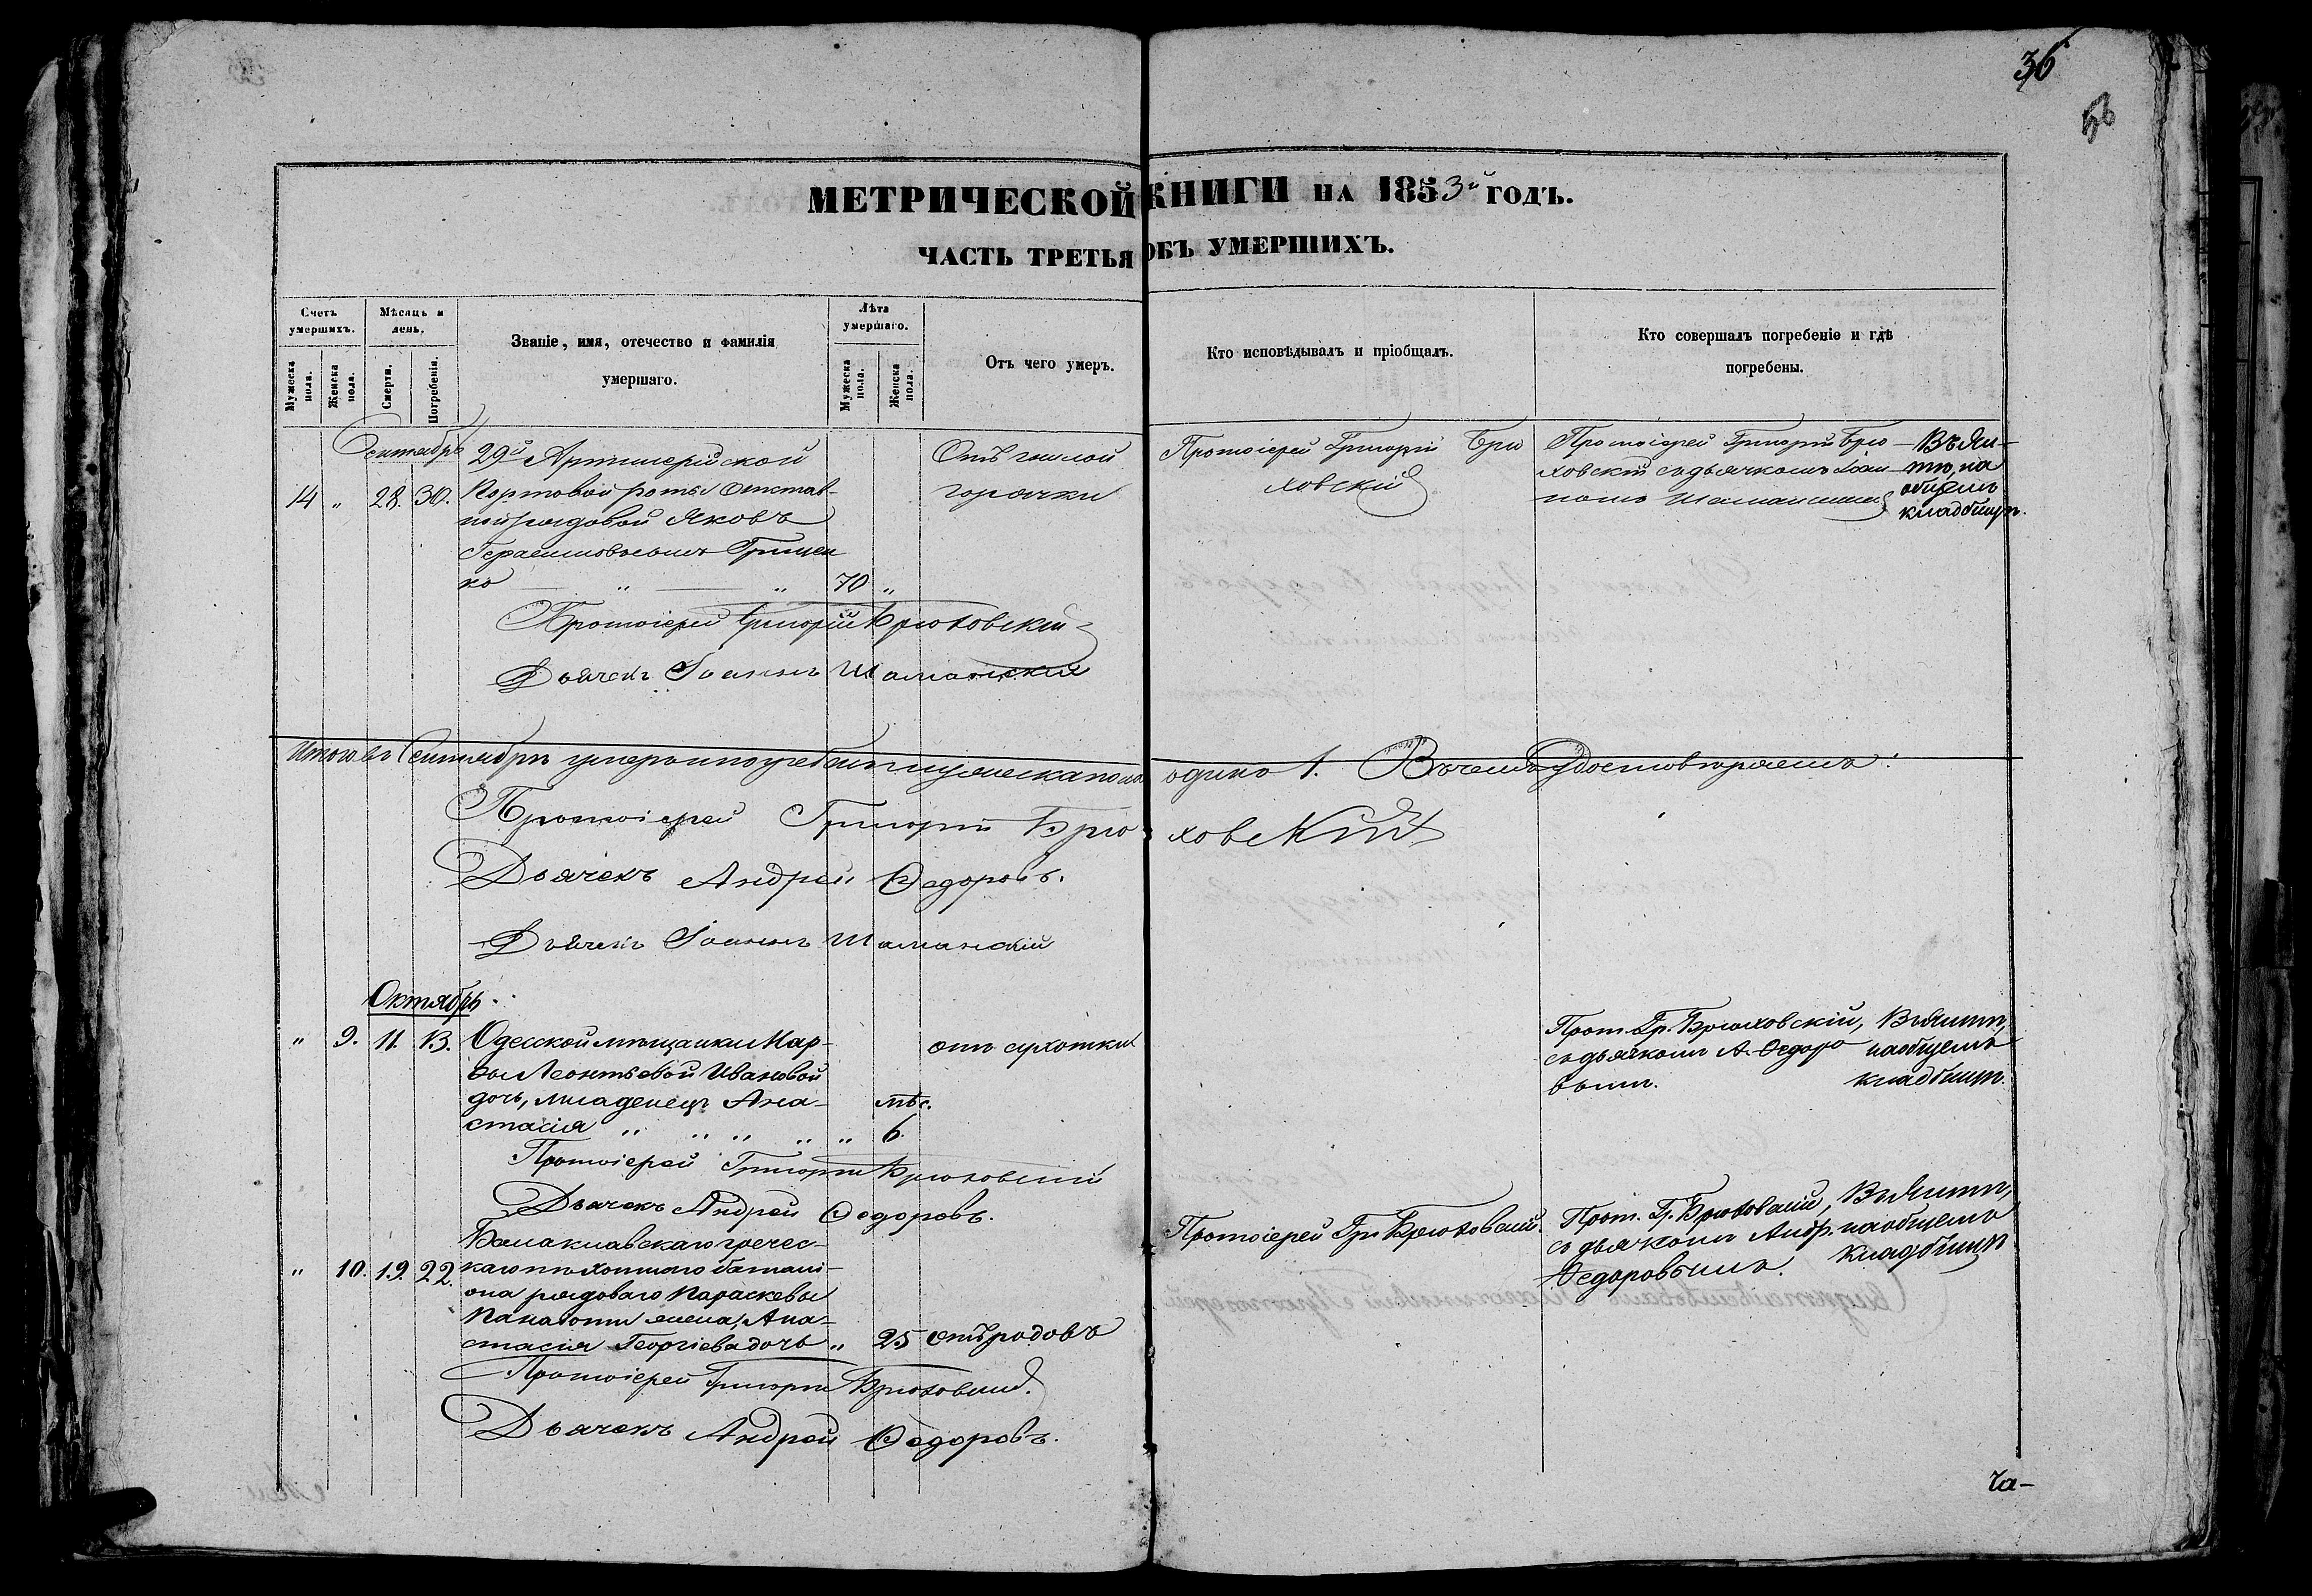 36
МЕТРИЧЕСКОЙ КНИГИ НА 1853й ГОДЪ.
ЧАСТЬ ТРЕТЬЯ ОБЪ УМЕРШИХЪ.
Счетъ умершихъ.
Мужеска пола.
Женска пола.
Мѣсяцъ и день.
Смерти.
Погребенія.
Званіе, имя, отечество и фамилія
умершаго.
Лѣта умершаго.
Мужеска пола.
Женска пола.
Отъ чего умеръ.
Кто исповѣдывалъ и пріобщалъ.
Кто совершалъ погребеніе и гдѣ
погребены.
Сентябрь
14 " 28. 30.
29й Артилерійской
Портовой роты отстав-
ной рядовой Яковъ
Герасимовъ сынъ Грицен
ко " " 70 "
Отъ гнилой
горячки
Протоіерей Григорій Брю
ховскій
Протоіерей Григорій Брю
ховскій съ дьячкомъ Іоан
номъ Шаманскимъ
Въ Ял-
тѣ, на
общемъ
кладбищѣ.
Протоіерей Григорій Брюховскій
Дьячекъ Іоаннъ Шаманскій
Итого въ Сентябрѣ умерло и погребено мужеска пола одинъ 1. Въ чемъ удостовѣряемъ:
Протоіерей Григорій Брюховскій
Дьячекъ Андрей Ѳедоровъ.
Дьячекъ Іоаннъ Шаманскій
Октябрь.
" 9. 11. 13.
Одесской мѣщанки Мар-
ѳы Леонтьевой Ивановой
дочь, младенецъ Ана-
стасія " " " " "
мѣс.
6.
отъ сухотки
Прот. Гр. Брюховскій,
съ дьячкомъ А. Ѳедоро
вымъ.
Въ Ялтѣ,
на общемъ
кладбищѣ.
Протоіерей Григорій Брюховскій
Дьячекъ Андрей Ѳедоровъ.
" 10. 19. 22.
Балаклавскаго гречес-
каго пѣхотнаго баталі-
она рядоваго Параскевы
Панаіоти жена, Ана-
стасія Георгіева дочь " 25 отъ родовъ
Протоіерей Гр. Брюховскій
Прот. Гр. Брюховскій,
съ дьячкомъ Андр.
Ѳедоровымъ.
Въ Ялтѣ,
на общемъ
кладбищѣ
Протоіерей Григорій Брюховскій.
Дьячекъ Андрей Ѳедоровъ.
Ча-